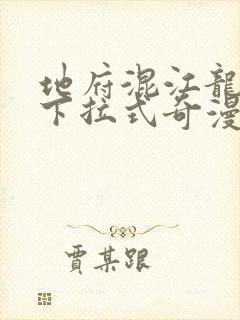 地府混江龍
下拉式奇漫
賈某跟